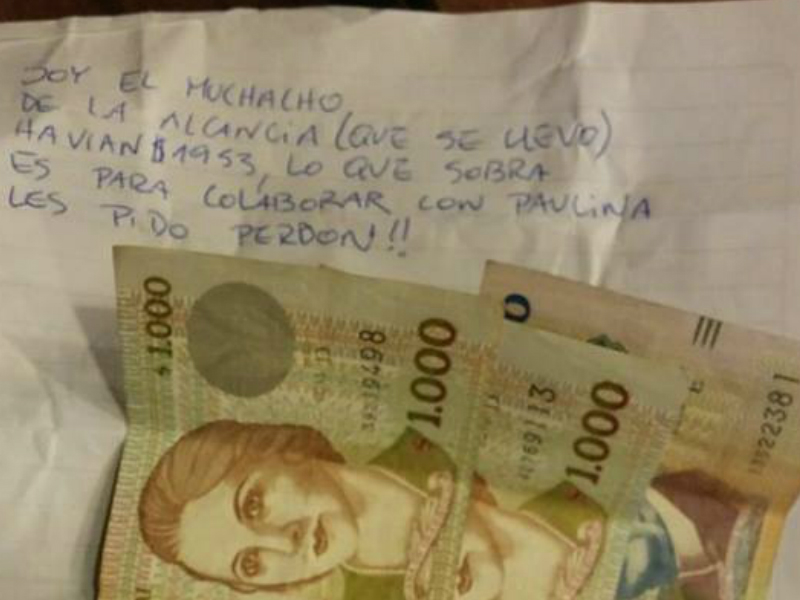 SOY EL MUCHACHO
DE LA ALCANCIA (QUE SE LLEVO)
HAVIAN $1953, LO QUE SOBRA
ES PARA COLABORAR CON PAULINA
LES PIDO PERDON!!
$1.000
1.000
1.000